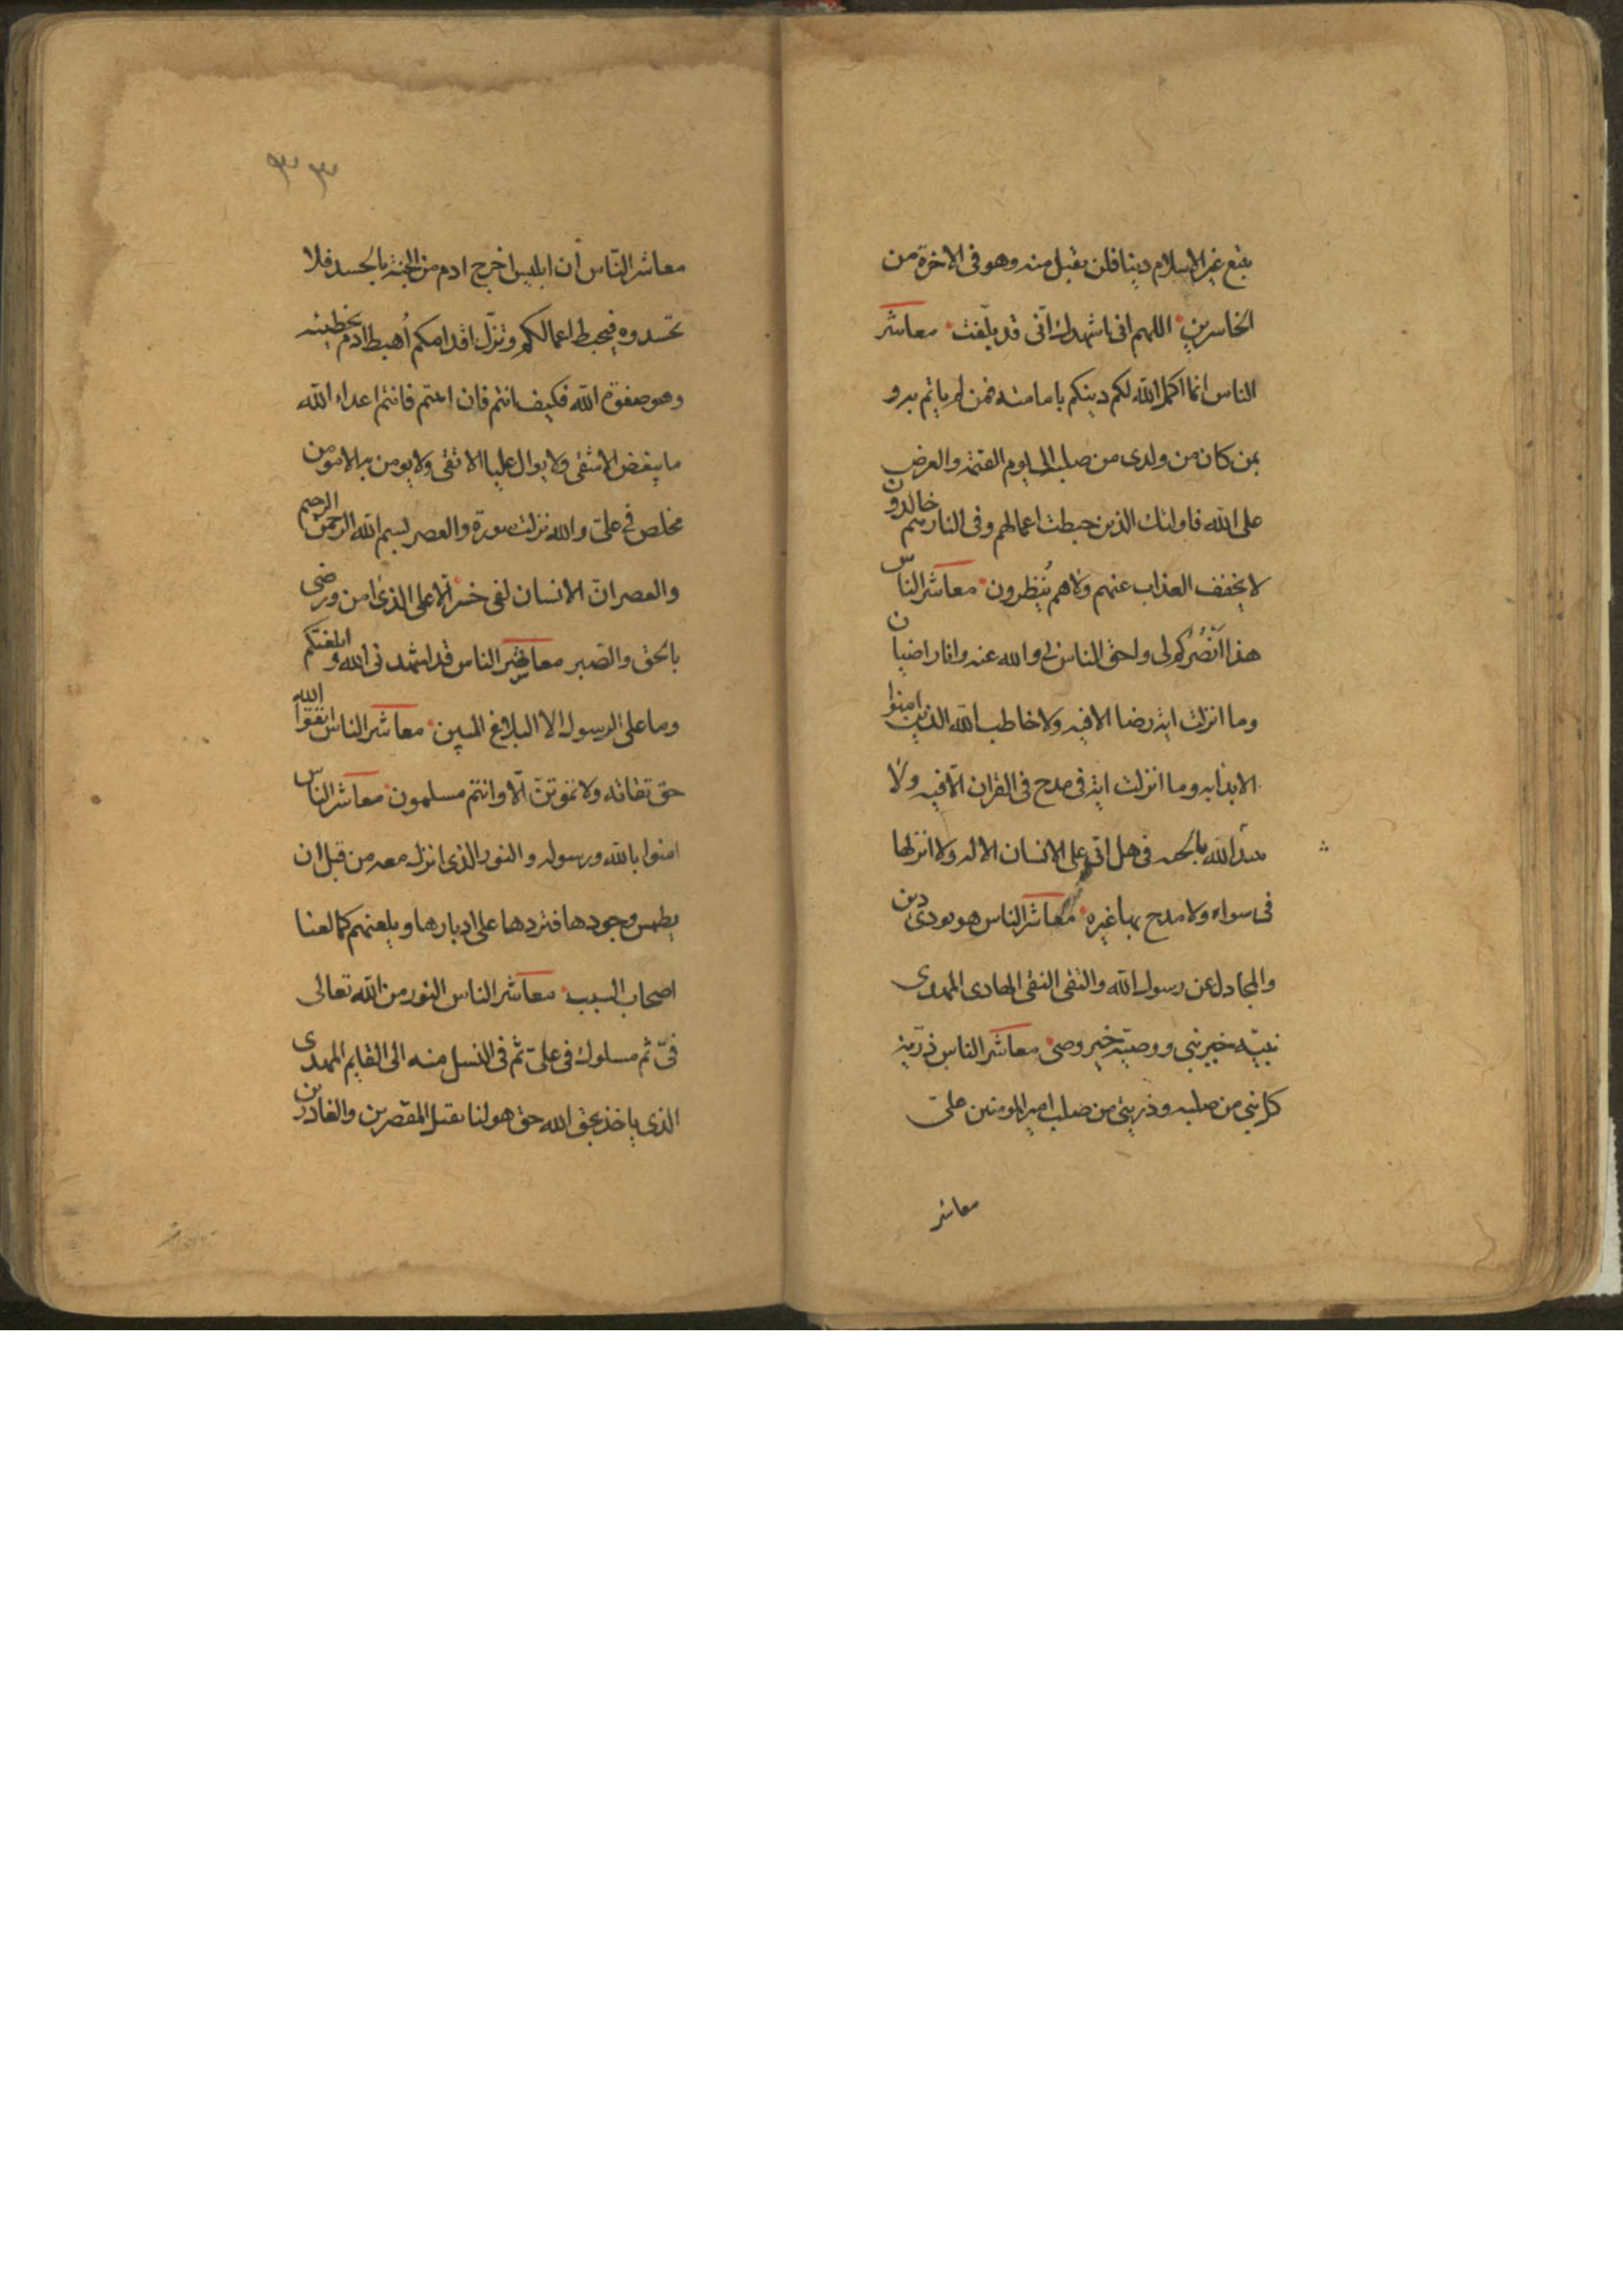 يبتع غير الاسلام دينا فلن يقبل منه وهو فى الاخرة من
الخاسرين اللهم انى اشهدك انّى قد بلّغت معاشر
الناس انما اكمل الله لكم دينكم بامامته فمن لم ياتم به و
بمن كان من ولدى من صلبه الى يوم القيمة والعرض
على الله فاولئك الذين حبطت اعمالهم وفى النار هم خالدون
لا يخفف العذاب عنهم ولا هم يُنظرون معاشر الناس
هذا اَنْصُرُكم لى واحق الناس لى والله عنه وانا راضيان
وما انزلت اية رضا الا فيه ولا خاطب الله الذين امنوا
الا بدأ به وما انزلت اية فى مدح فى القران الّا فيه ولا
الله بالجنه فى هل اتى على الانسان الا له ولا انزلها
فى سواه ولا مدح بها غيره معاشر الناس هو يودى دين
والمجادل عن رسول الله والتقى النقى الهادى المهدى
نبيّه خير نبى ووصيّه خير وصى معاشر الناس ذرّية
كل نبي من صلبه وذريتى من صلب امير المومنين علىّ
معاشر
٣٣
معاشر النّاس ان ابليس اخرج ادم من الجنة بالحسد فلا
تحسدوه فيحبط اعمالكم وتزلّ اقدامكم اُهبط ادم بخطيئه
وهو صفوة الله فكيف انتم فان ابيتم فانتم اعداء الله
ما يبغض الا شقى ولا يوال عليا الا تقى ولا يومن به الا مومن
مخلص فى علىّ والله نزلت سورة والعصر بسم الله الرحمن الرحيم
والعصر انّ الانسان لفى خسر الّا على الذى امن ورضى
بالحق والصبر معاشر الناس قد اشهدنى الله وابلغتكم
وما على الرسول الا البلاغ المبين معاشر الناس اتقوا الله
حق تقاته ولا تموتنّ الّا وانتم مسلمون معاشر الناس
امنوا بالله ورسوله والنور الذى انزل معه من قبل ان
يطمس وجودها فنردها على ادبارها ويلعنهم كما لعنا
اصحاب السبب معاشر الناس النور من الله تعالى
فىّ ثم مسلوك فى علىّ ثم فى النسل منه الى القايم المهدى
الذى ياخذ بحق الله حق هو لنا بقتل المقصرين والغادرين